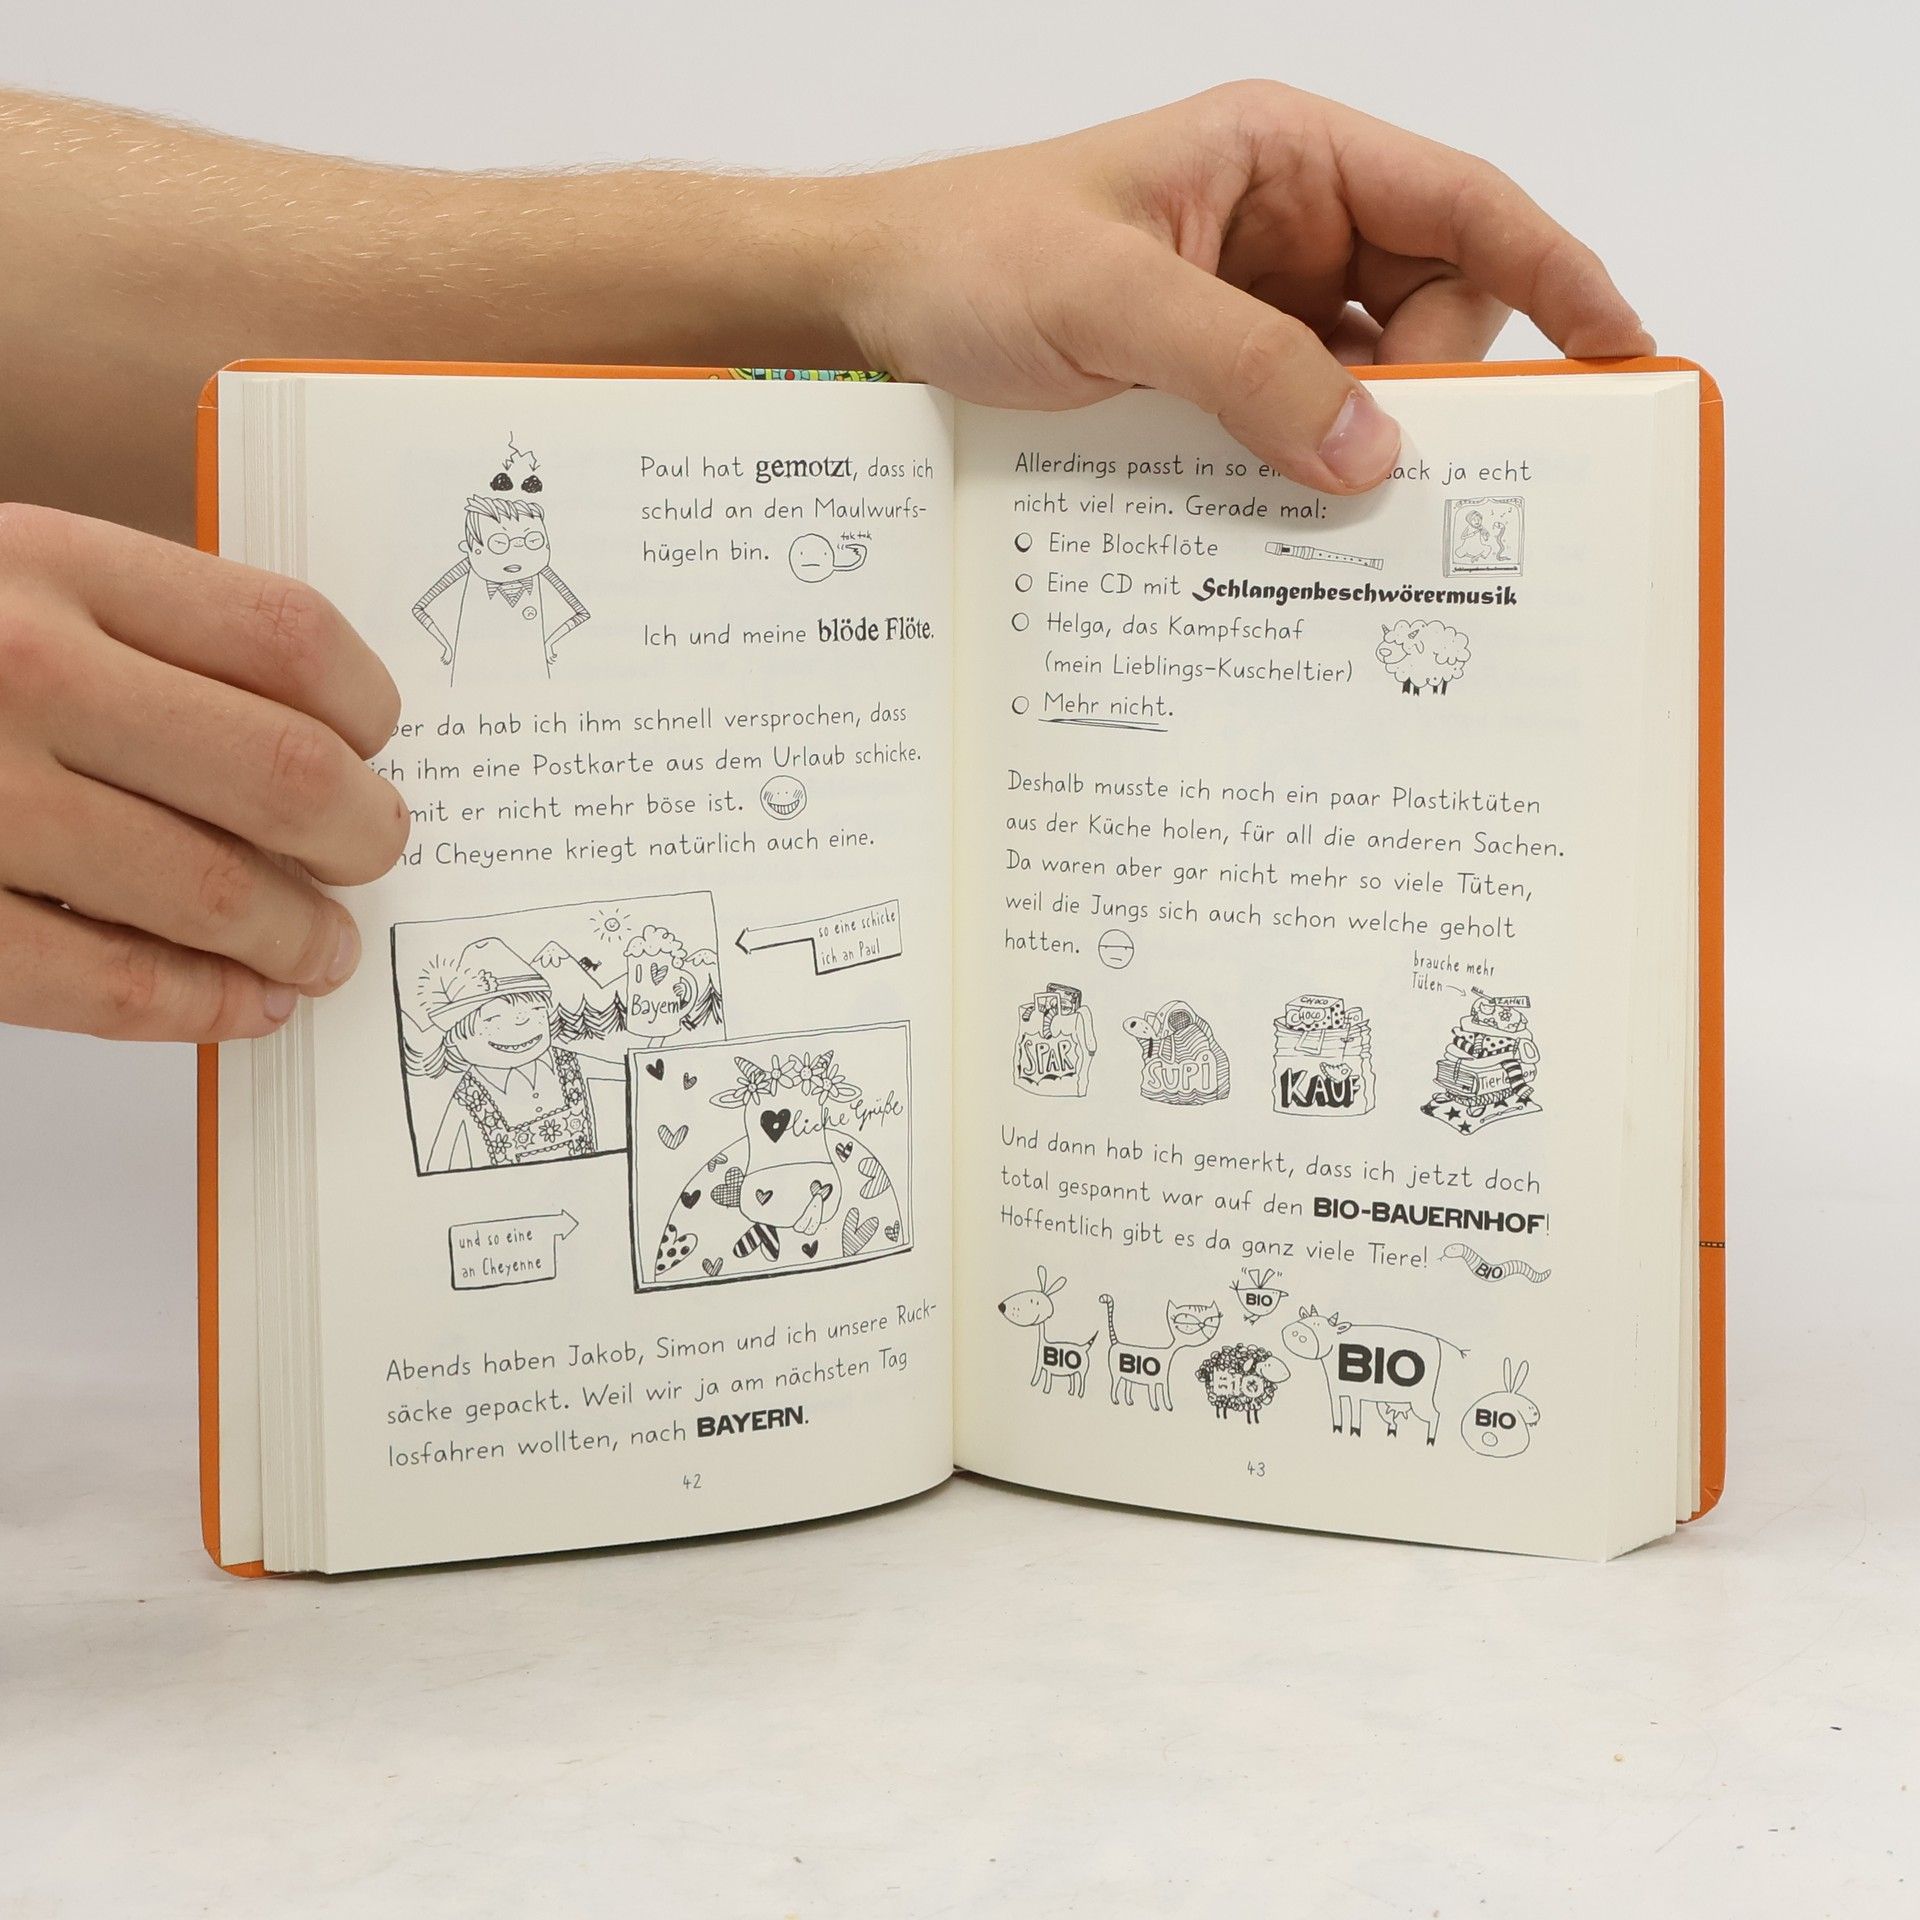 Paul hat gemotzt, dass ich
schuld an den Maulwurfs-
hügeln bin.
tok tok
Ich und meine blöde Flöte.
da hab ich ihm schnell versprochen, dass
ich ihm eine Postkarte aus dem Urlaub schicke.
er nicht mehr böse ist.
Cheyenne kriegt natürlich auch eine.
so eine schicke
ich an Paul
I
Bayern
liche Grüße
und so eine
an Cheyenne
Abends haben Jakob, Simon und ich unsere Ruck-
säcke gepackt. Weil wir ja am nächsten Tag
losfahren wollten, nach BAYERN.
42
Allerdings passt in so ja echt
nicht viel rein. Gerade mal:
Eine Blockflöte
Schlangenbeschwörermusik
Eine CD mit Schlangenbeschwörermusik
Helga, das Kampfschaf
(mein Lieblings-Kuscheltier)
Mehr nicht.
Deshalb musste ich noch ein paar Plastiktüten
aus der Küche holen, für all die anderen Sachen.
Da waren aber gar nicht mehr so viele Tüten,
weil die Jungs sich auch schon welche geholt
hatten.
brauche mehr
Tüten
SPAR
SUPI
CHOCO
CHOCO
KAUF
ZAHNI
Und dann hab ich gemerkt, dass ich jetzt doch
total gespannt war auf den BIO-BAUERNHOF!
Hoffentlich gibt es da ganz viele Tiere!
BIO
BIO
BIO
BIO
BIO
BIO
BIO
43